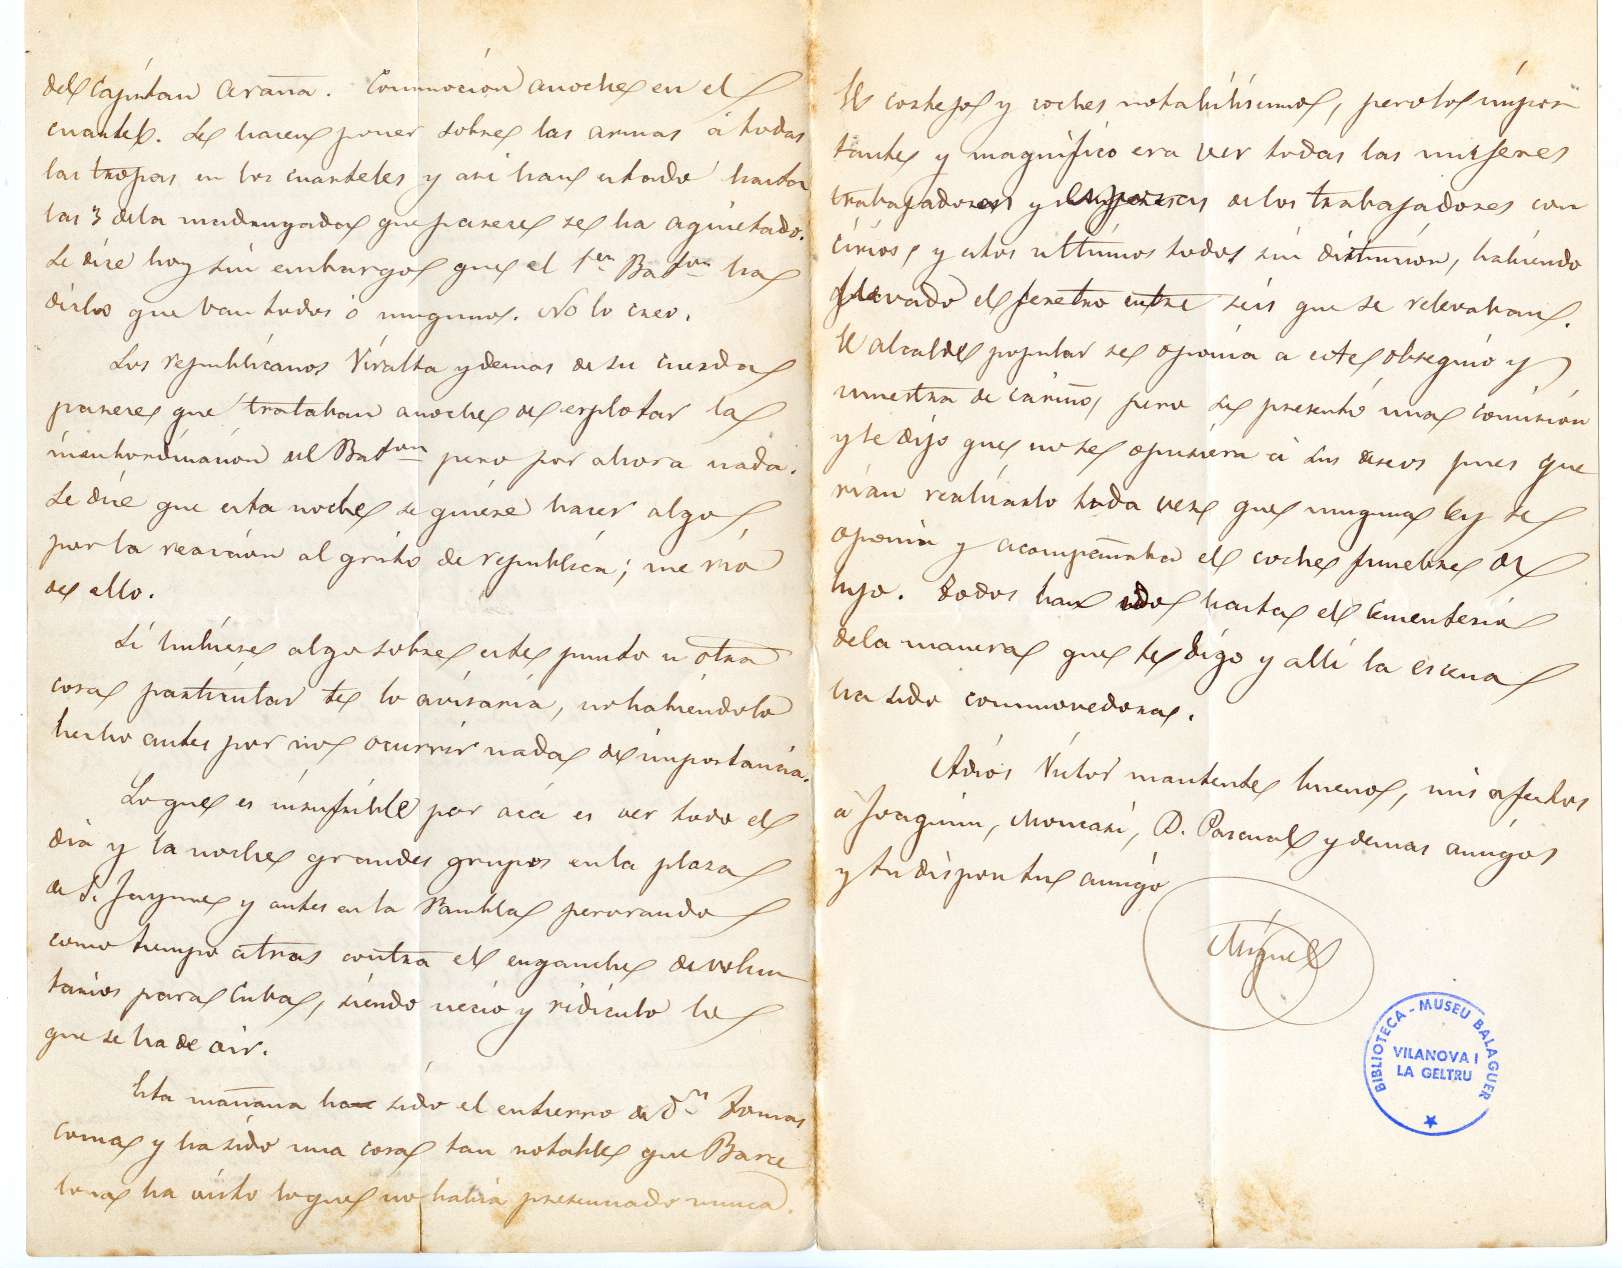 del Capitan Arana. Conmocion anoche en el
cuartel. Se hacen poner sobre las armas á todas
las tropas en los cuarteles y asi han estado hasta
las 3 de la madrugada que parece se ha aquietado.
Se dice hoy sin embargo que el 1er Baton ha
dicho que van todos ó ninguno. No lo creo.
Los republicanos Viralta y demas de su cuerda
parece que trataban anoche de explotar la
insubordinacion del Baton pero por ahora nada.
Se dice que esta noche se quiere hacer algo
por la reaccion al grito de republica; me rio
de ello.
Si hubiese algo sobre este punto u otra
cosa particular te lo avisaria, no habiendolo
hecho antes por no ocurrir nada de importancia.
Lo que es insufrible por acá es ver todo el
dia y la noche grandes grupos en la plaza
de S. Jayme y antes en la Rambla perorando
como tiempo atras contra el enganche de volun
tarios para Cuba, siendo necio y ridiculo lo
que se ha de oir.
Esta mañana ha sido el entierro de Dn Tomas
Coma y ha sido una cosa tan notable que Barce
lona ha visto lo que no habia presenciado nunca.
El cortejo y coches notabilisimos, pero lo impor
tante y magnifico era ver todas las mujeres
trabajadoras y esposas de los trabajadores con
cirios, y estos ultimos todos sin distincion, habiendo
llevado el feretro entre seis que se relevaban.
El alcalde popular se oponia a este obsequio y
muestra de cariño, pero se presentó una comision
y le dijo que no se opusiera á sus deseos pues que
rian realizarlo toda vez que ninguna ley se
oponia y acompañaba el coche funebre de
lujo. Todos han ido hasta el Cementerio
de la manera que te digo y alli la escena
ha sido conmovedora.
Adios Victor mantente bueno, mis afectos
á Joaquin, Moncasi, D. Pascual y demas amigos
y tu dispon tu amigo
Miguel
BIBLIOTECA - MUSEU BALAGUER
VILANOVA I
LA GELTRU